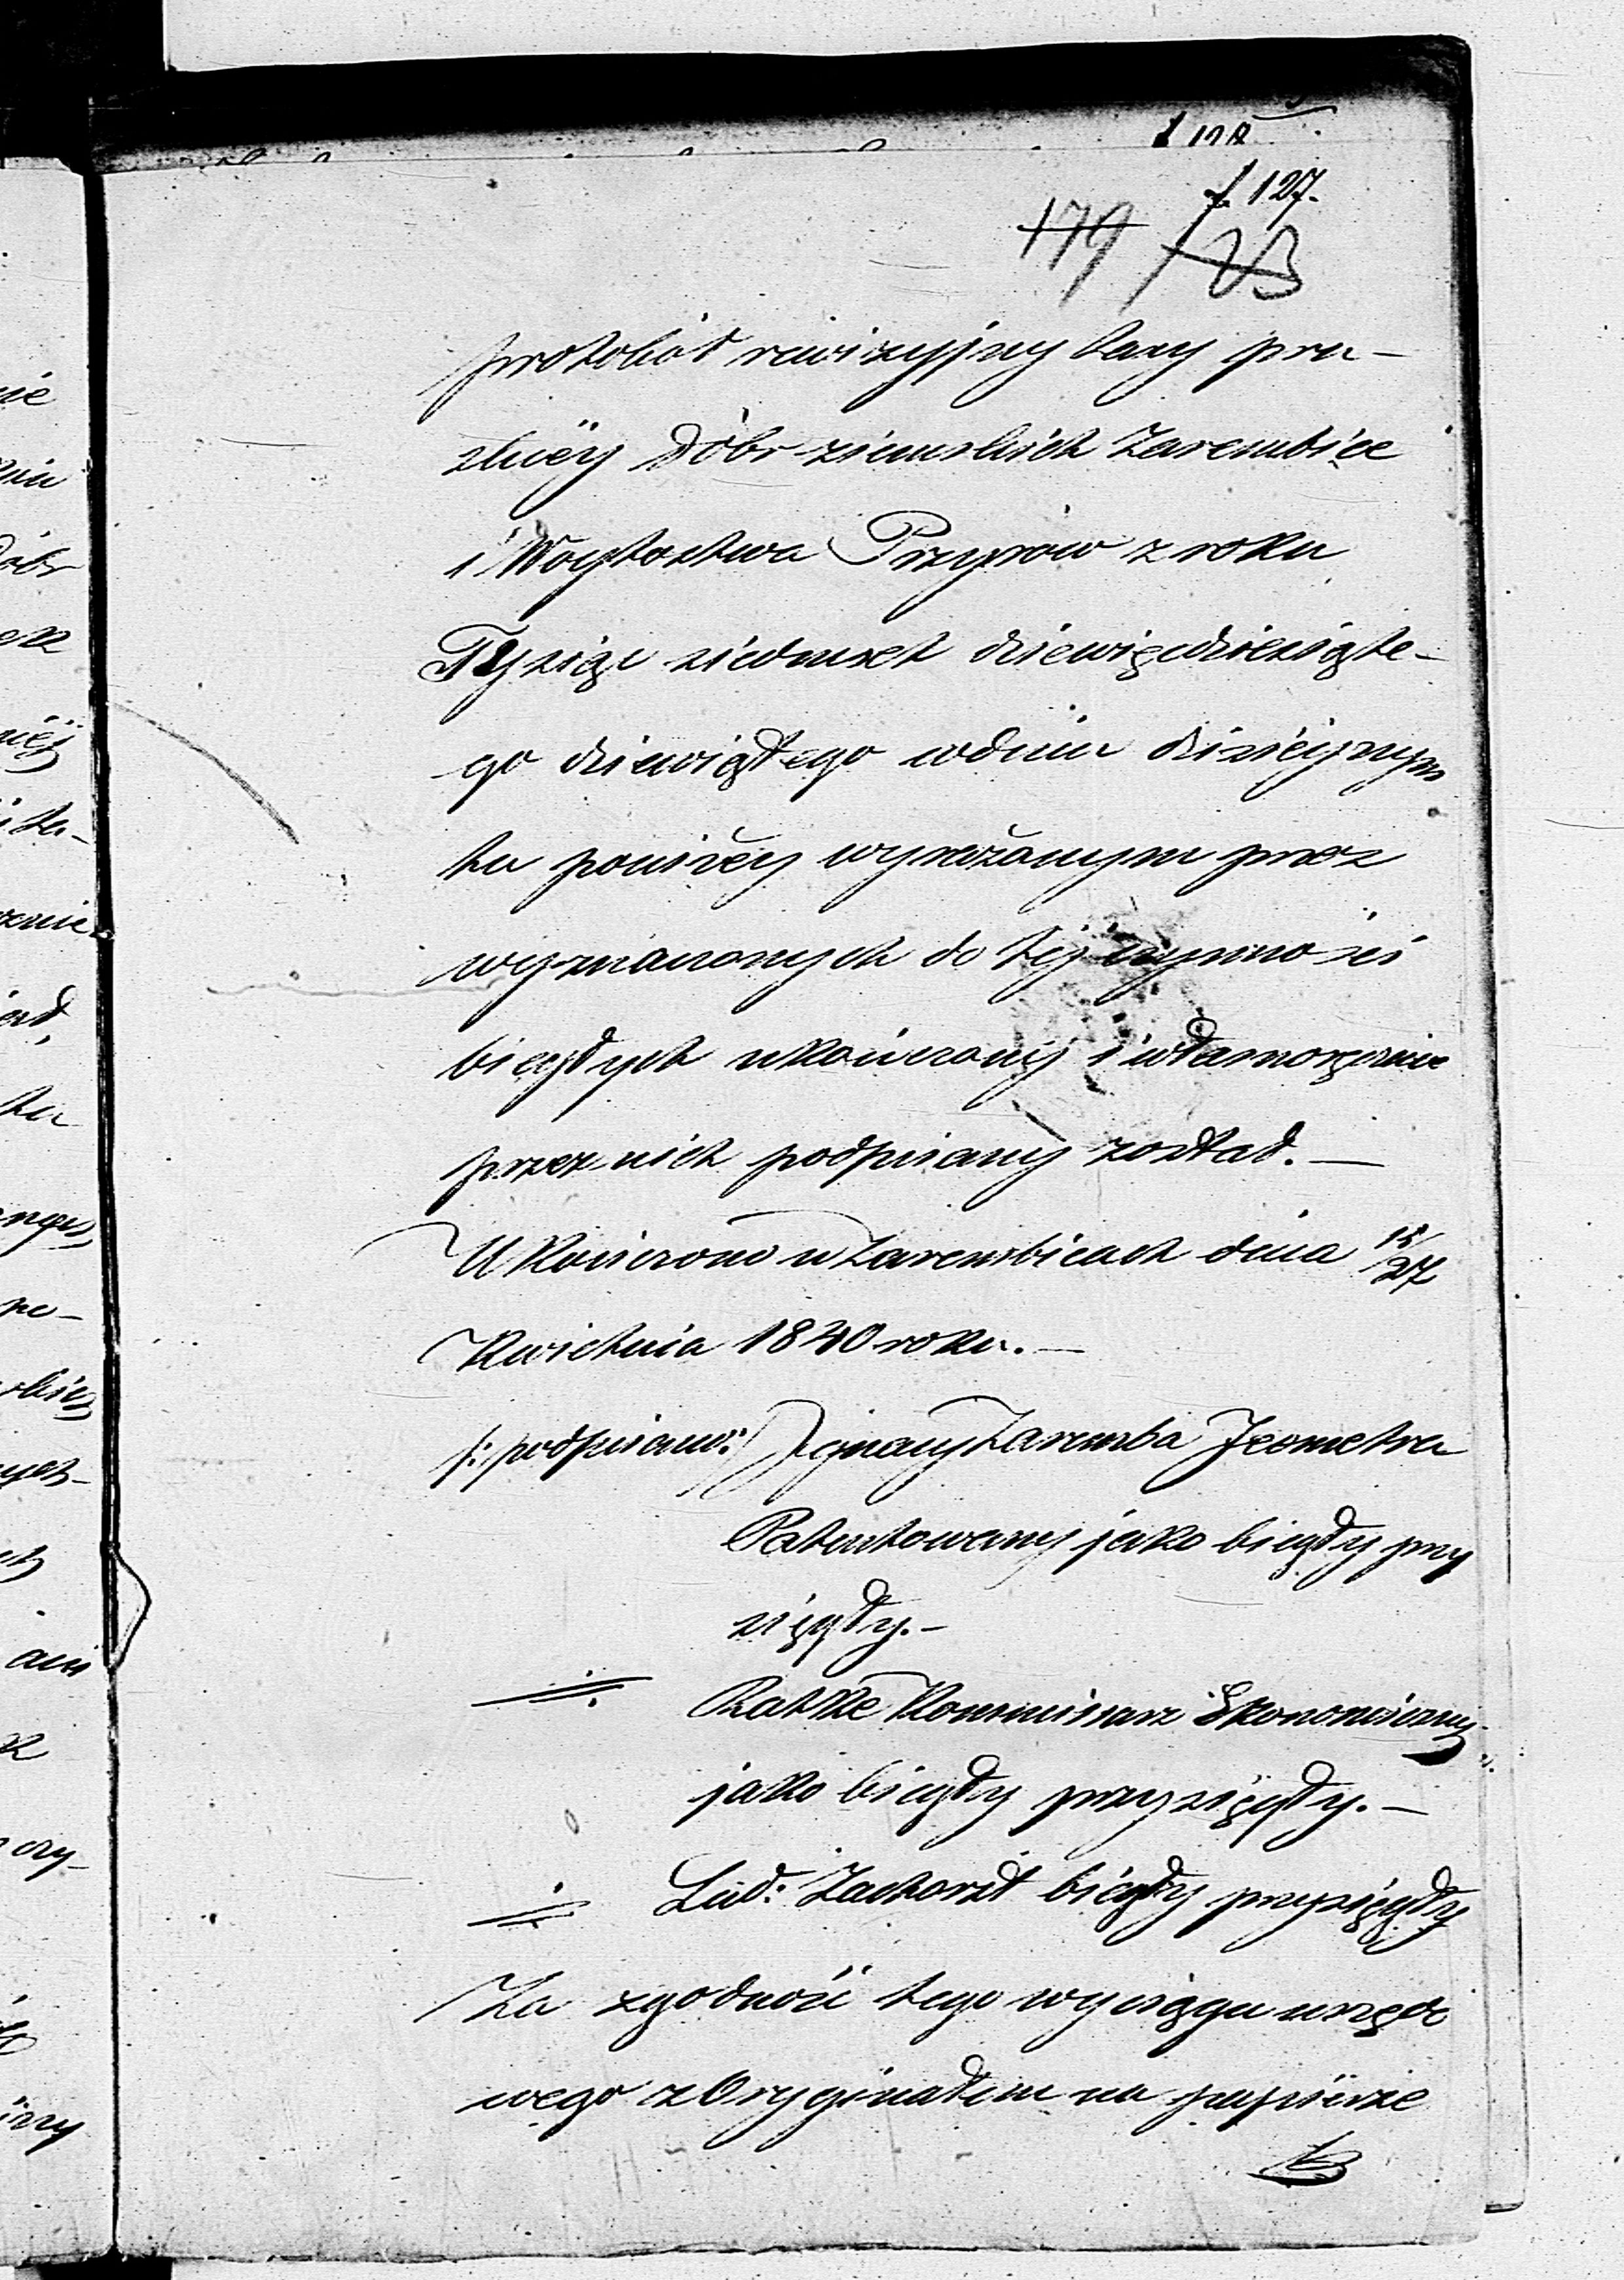 f. 127.
179 123
protokół rewizyjny taxy pru-
skiéy Dóbr ziemskich Zarembice
i Woytostwa Przyrów z roku
Tysiąc siedmset dziewięćdziesiąte-
go dziewiątego w dniu dzisiéyszym
tu poniżéy wyrażonym przez
wyznaczonych do téj czynności
biegłych ukończony i własnoręcznie
przez nich podpisany został. —
Ukończono w Zarembicach dnia 15/27
Kwietnia 1840 roku. —
/: podpisano:/ Ignacy Zaremba Jeometra
Patentowany jako biegły przy
sięgły. —
Ratke Kommissarz Ekonomiczny
jako biegły przysięgły. —
Lud: biegły przysięgły
Za zgodność tego wyciągu urzędo
wego z Oryginałem na papiérze